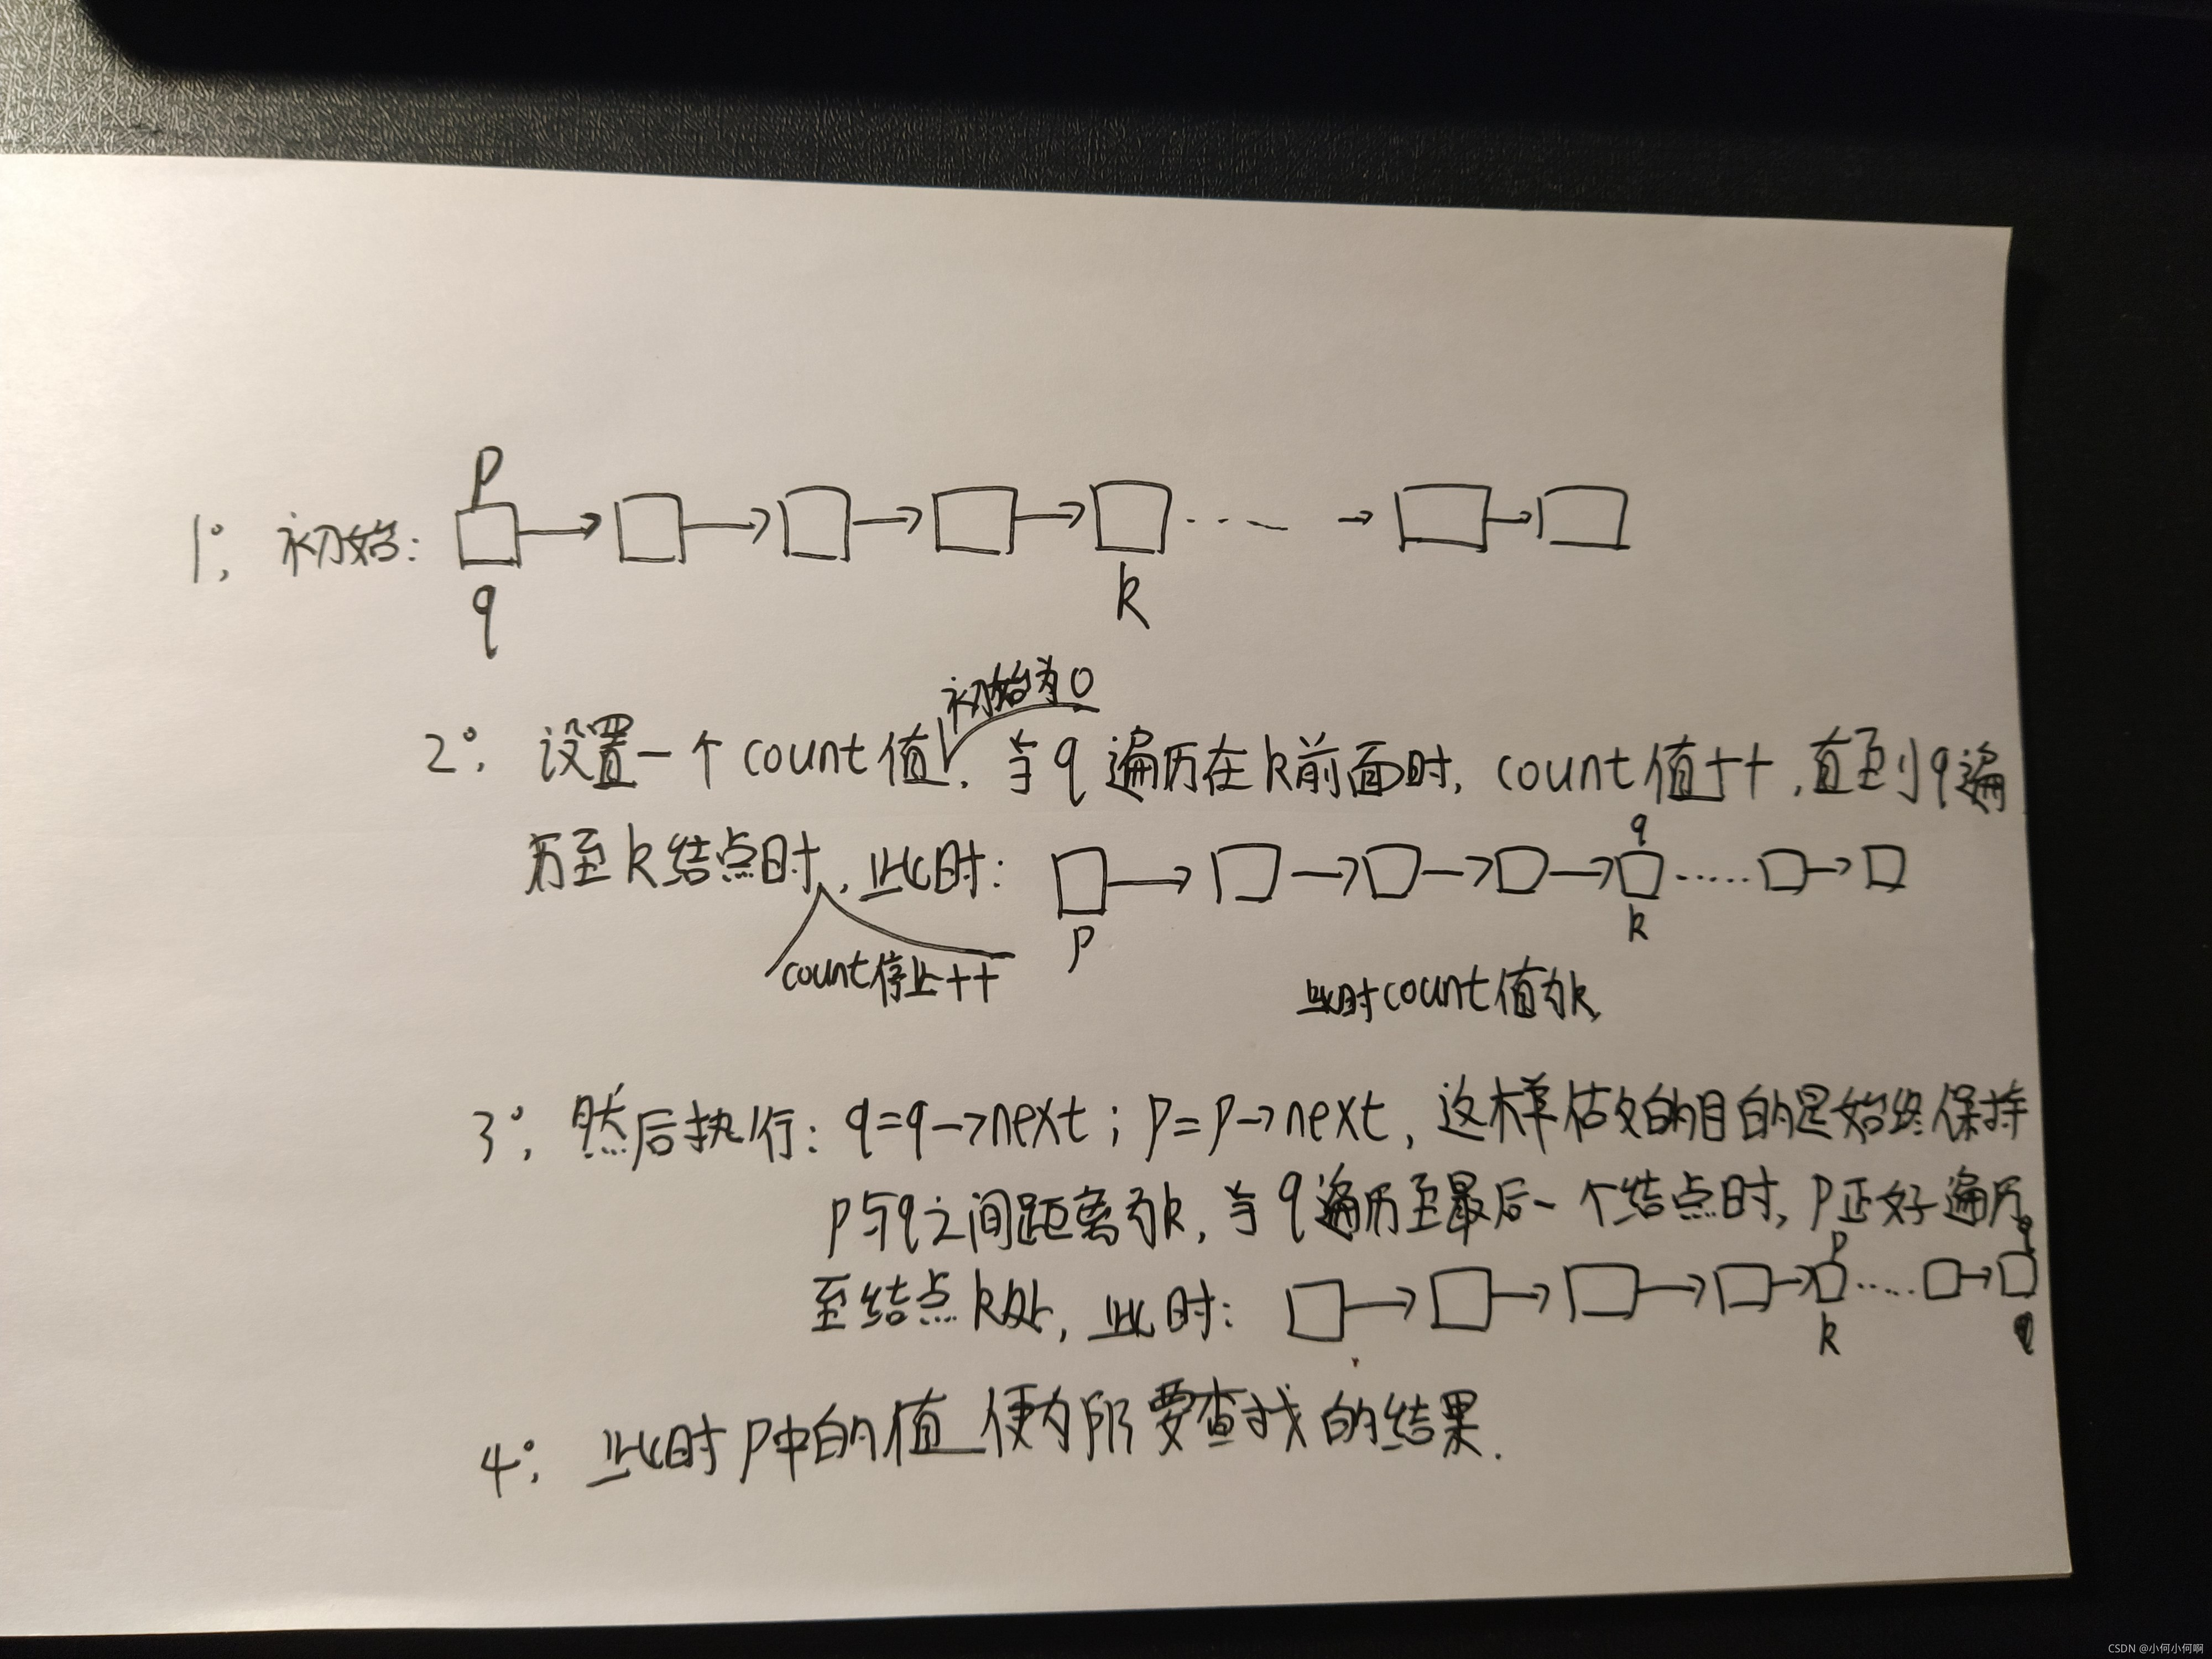 p
1°, 初始:
q
k
初始为0
2°, 设置一个count值, 当q遍历在k前面时, count值++, 直到q遍
q
历至k结点时, 此时:
p
k
count停止++
此时count值为k,
3°, 然后执行: q=q→next; p=p→next, 这样做的目的是始终保持
p与q之间距离为k, 当q遍历至最后一个结点时, p正好遍历
p
q
至结点k处, 此时:
k
4°, 此时p中的值便为所要查找的结果.
CSDN @小何小何啊